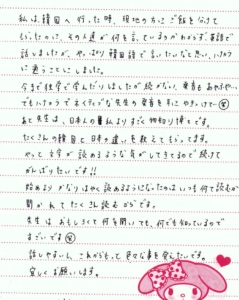 私は、韓国へ行った時、現地の方にご飯を分けて
もらったのに、その人達が何を言っているかわからず、英語で
話しましたが、やっぱり韓国語で言いたいなと思い、ハナカラ
に通うことにしました。
今まで独学で学んだりしましたが続かない、発音もあやふや…
でもハナカラでネイティブな先生の発音を耳にやきつけて(笑)
あと先生は、日本人の私よりすごく物知り博士です。
たくさんの韓国と日本の違いを教えてもらってます。
やっと文字が読めるような気がしてきてるので続けて
がんばりたいです!!
始めよりかなりはやく読めるようになったのはいつも何て読むか
聞かれてたくさん読むからです。
先生は、おもしろくて何を聞いても、何でも知っているので
すごいです(笑)
話しやすいし、これからもって色々な事を覚えたいです。
宜しくお願いします。